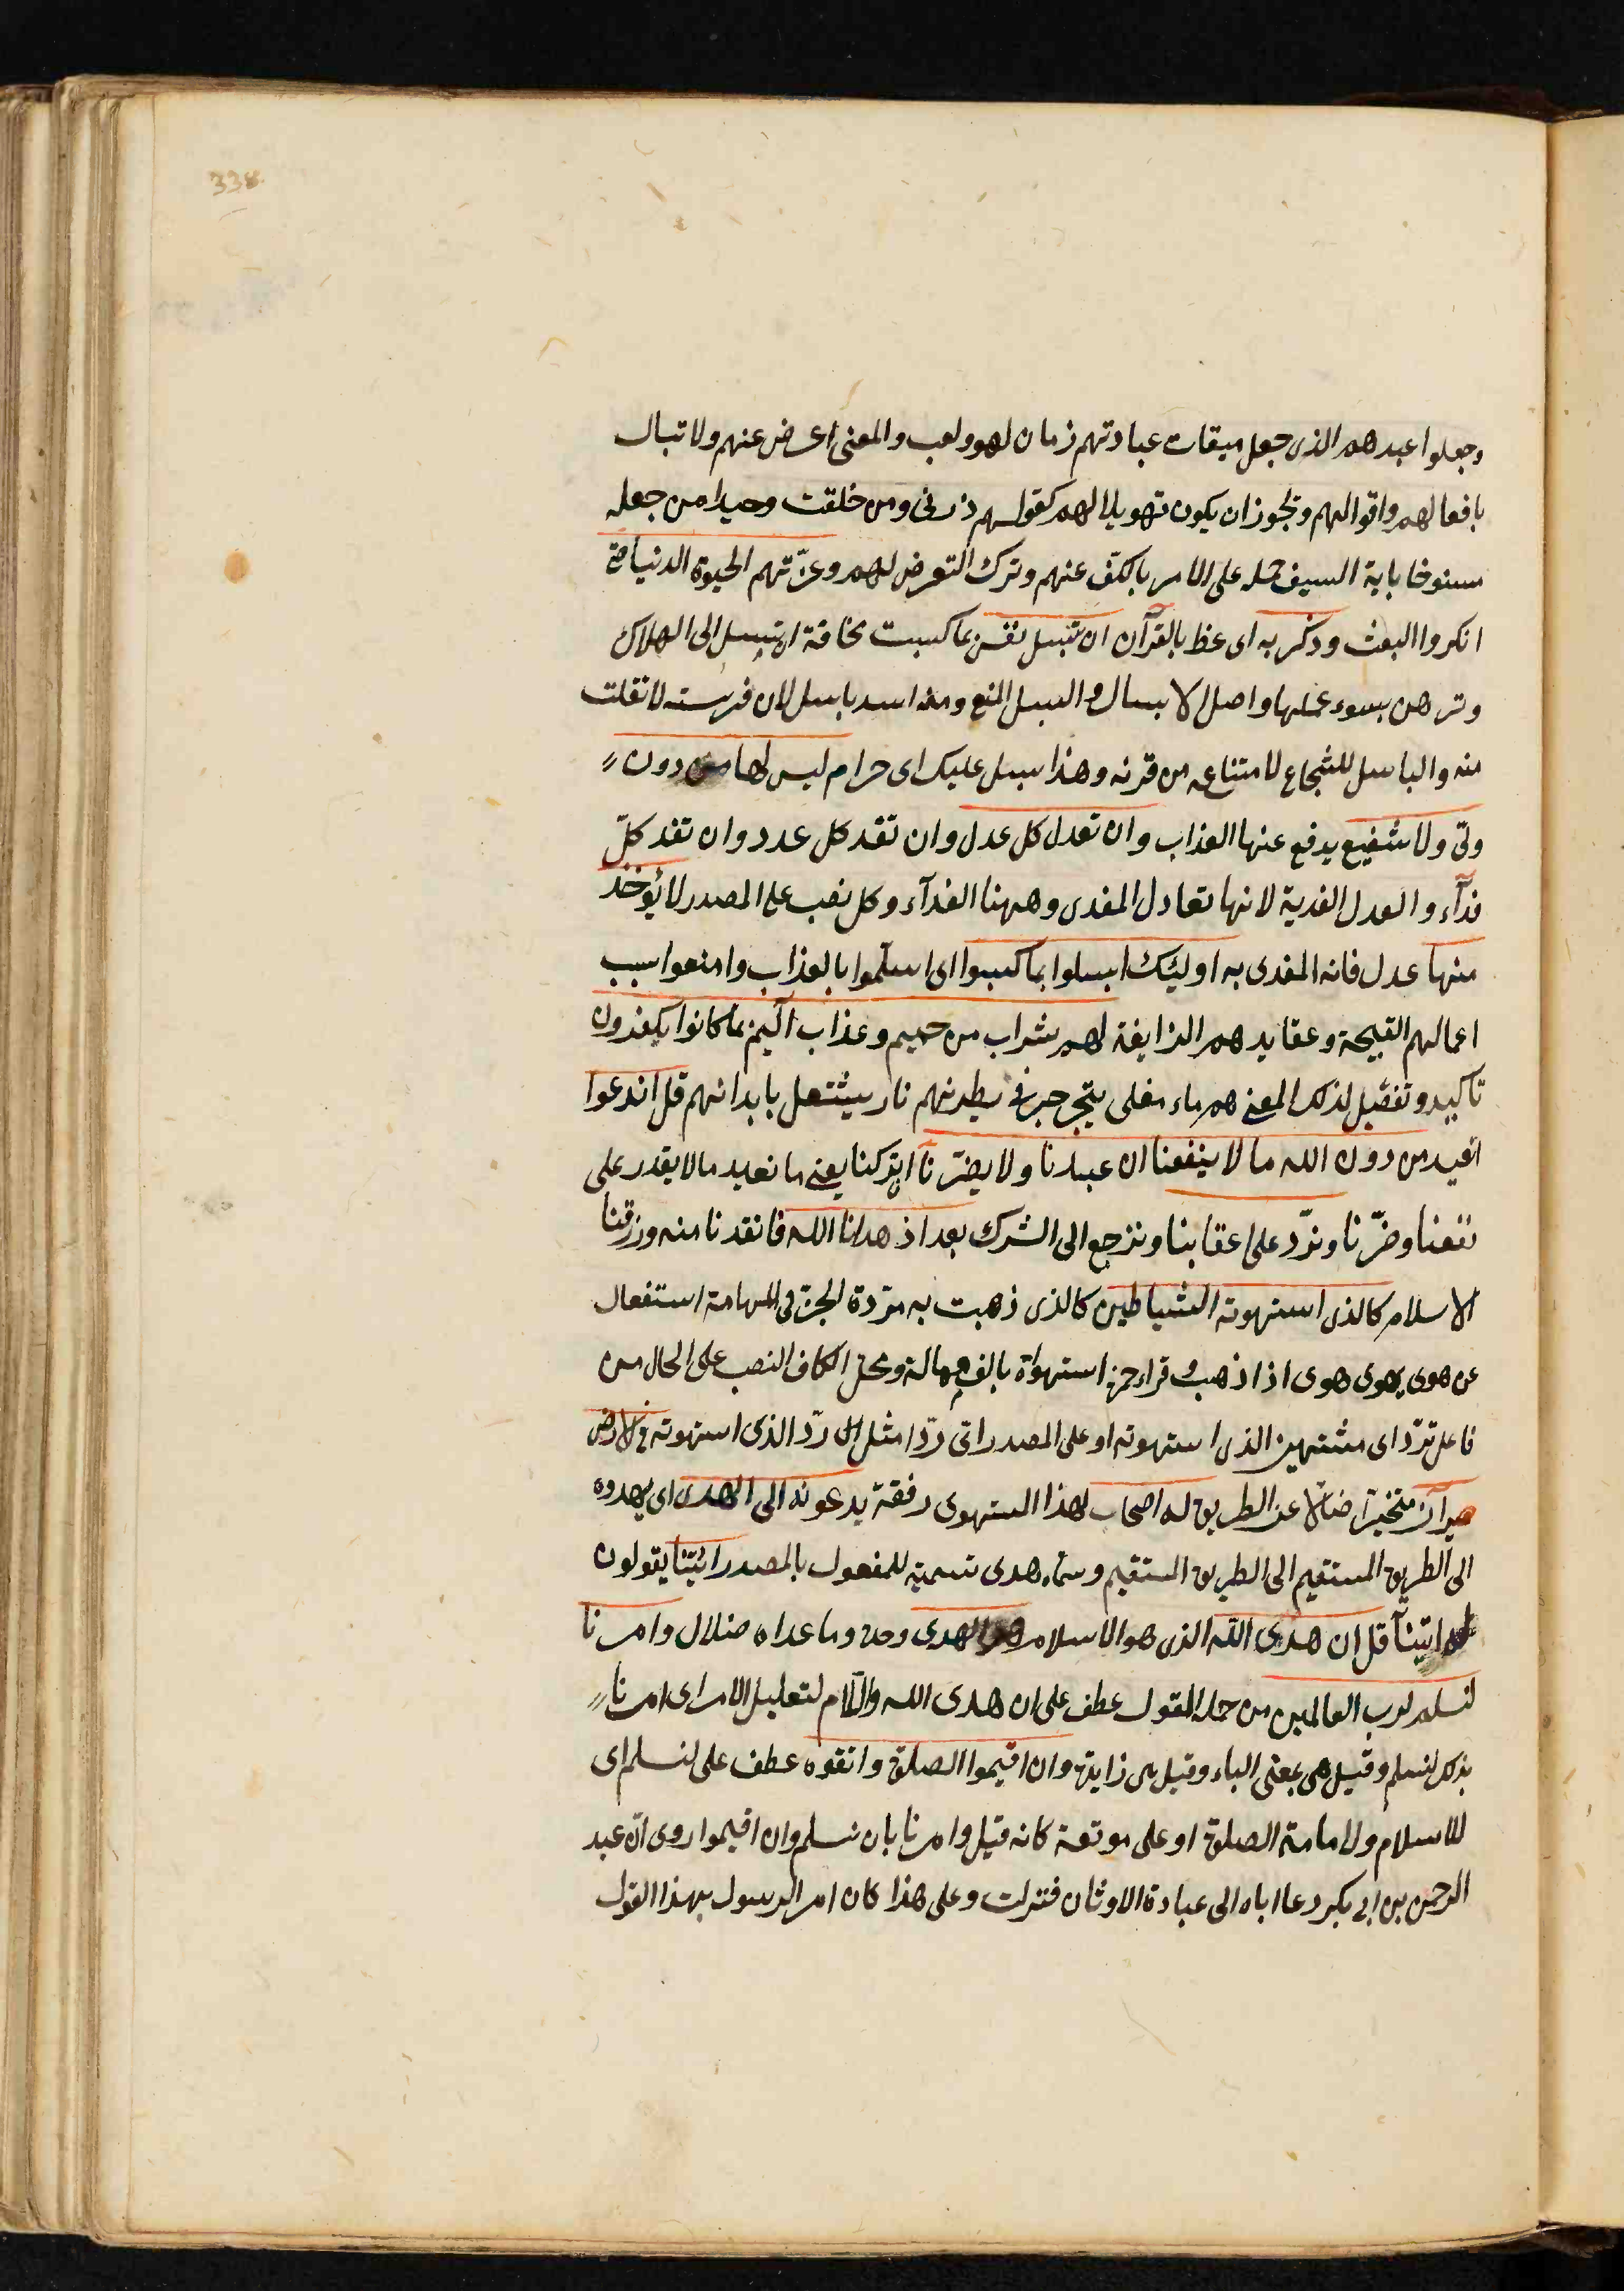 338
وجعلوا عيدهم الذى جعل ميقات عبادتهم زمان لهو ولعب والمعنى اعرض عنهم ولا تبال
بافعالهم واقوالهم ويجوز ان يكون تهويلا لهم كقولهم ذرنى ومن خلقت وحيدا من جعله
منسوخا باية السيف حمله على الامر بالكف عنهم وترك التعرض لهم وغرّتهم الحيوة الدنيا حتى
انكروا البعث وذكر به اى عظ بالقرآن ان تبسل نفس بما كسبت مخافة ان تبسل الى الهلاك
وترهن بسوء عملها واصل الابسال والبسل المنع ومنه اسد باسل لان فريسته لا تفلت
منه والباسل للشجاع لامتناعه من قرنه وهذا بسل عليك اى حرام ليس لها من دون
ولىّ ولا شفيع يدفع عنها العذاب وان تعدل كل عدل وان تفد كل عدد وان تفد كلّ
فدآء والعدل الفدية لانها تعادل المفدى وههنا الفدآء وكل نصب على المصدر لا يؤخذ
منها عدل فانه المفدى به اوليئك ابسلوا بما كسبوا اى اسلموا بالعذاب وامنعوا بسبب
اعمالهم القبيحة وعقايدهم الزايغة لهم شراب من حميم وعذاب اليم بما كانوا يكفرون
تاكيد وتفصيل لذلك المعنى هم ماء مغلى يتجرجر فى بطونهم نار يشتعل بابدانهم قل اندعوا
انعبد من دون الله ما لا ينفعنا ان عبدنا ولا يضرّنا ان تركنا يعنى ما نعبد ما لا يقدر على
نفعنا وضرّنا ونردّ على اعقابنا ونرجع الى الشرك بعد اذ هدانا الله فانقذنا منه ورزقنا
الاسلام كالذى استهوته الشياطين كالذى ذهبت به مردة الجن فى المهامة استفعال
من هوى يهوى هوى اذا ذهب وقراء حمزة استهواة بالف ممالة ومحل الكاف النصب على الحال من
فاعل نردّ اى مشتبهين الذى استهوته او على المصدر اى ردّا مثل ردّ الذى استهوته فى الارض
حيرآن متحيّرا ضالّا عن الطريق له اصحاب لهذا المستهوى رفقة يدعونه الى الهدى اى يهدوه
الى الطريق المستقيم الى الطريق المستقيم وسماه هدى تسمية للمفعول بالمصدر ائتنا يقولون
له ايتنا قل ان هدى الله الذى هو الاسلام هو الهدى وحده وما عداه ضلال وامرنا
لنسلم لرب العالمين من جملة المقول عطف على ان هدى الله واللام لتعليل الامر اى امرنا
بذلك لنسلم وقيل هى بمعنى الباء وقيل هى زايدة وان اقيموا الصلوة واتقوه عطف على لنسلم اى
للاسلام ولاقامة الصلوة او على موقعه كانه قيل وامرنا بان نسلم وان اقيموا روى ان عبد
الرحمن بن ابى بكر دعا اباه الى عبادة الاوثان فنزلت وعلى هذا كان امر الرسول بهذا القول